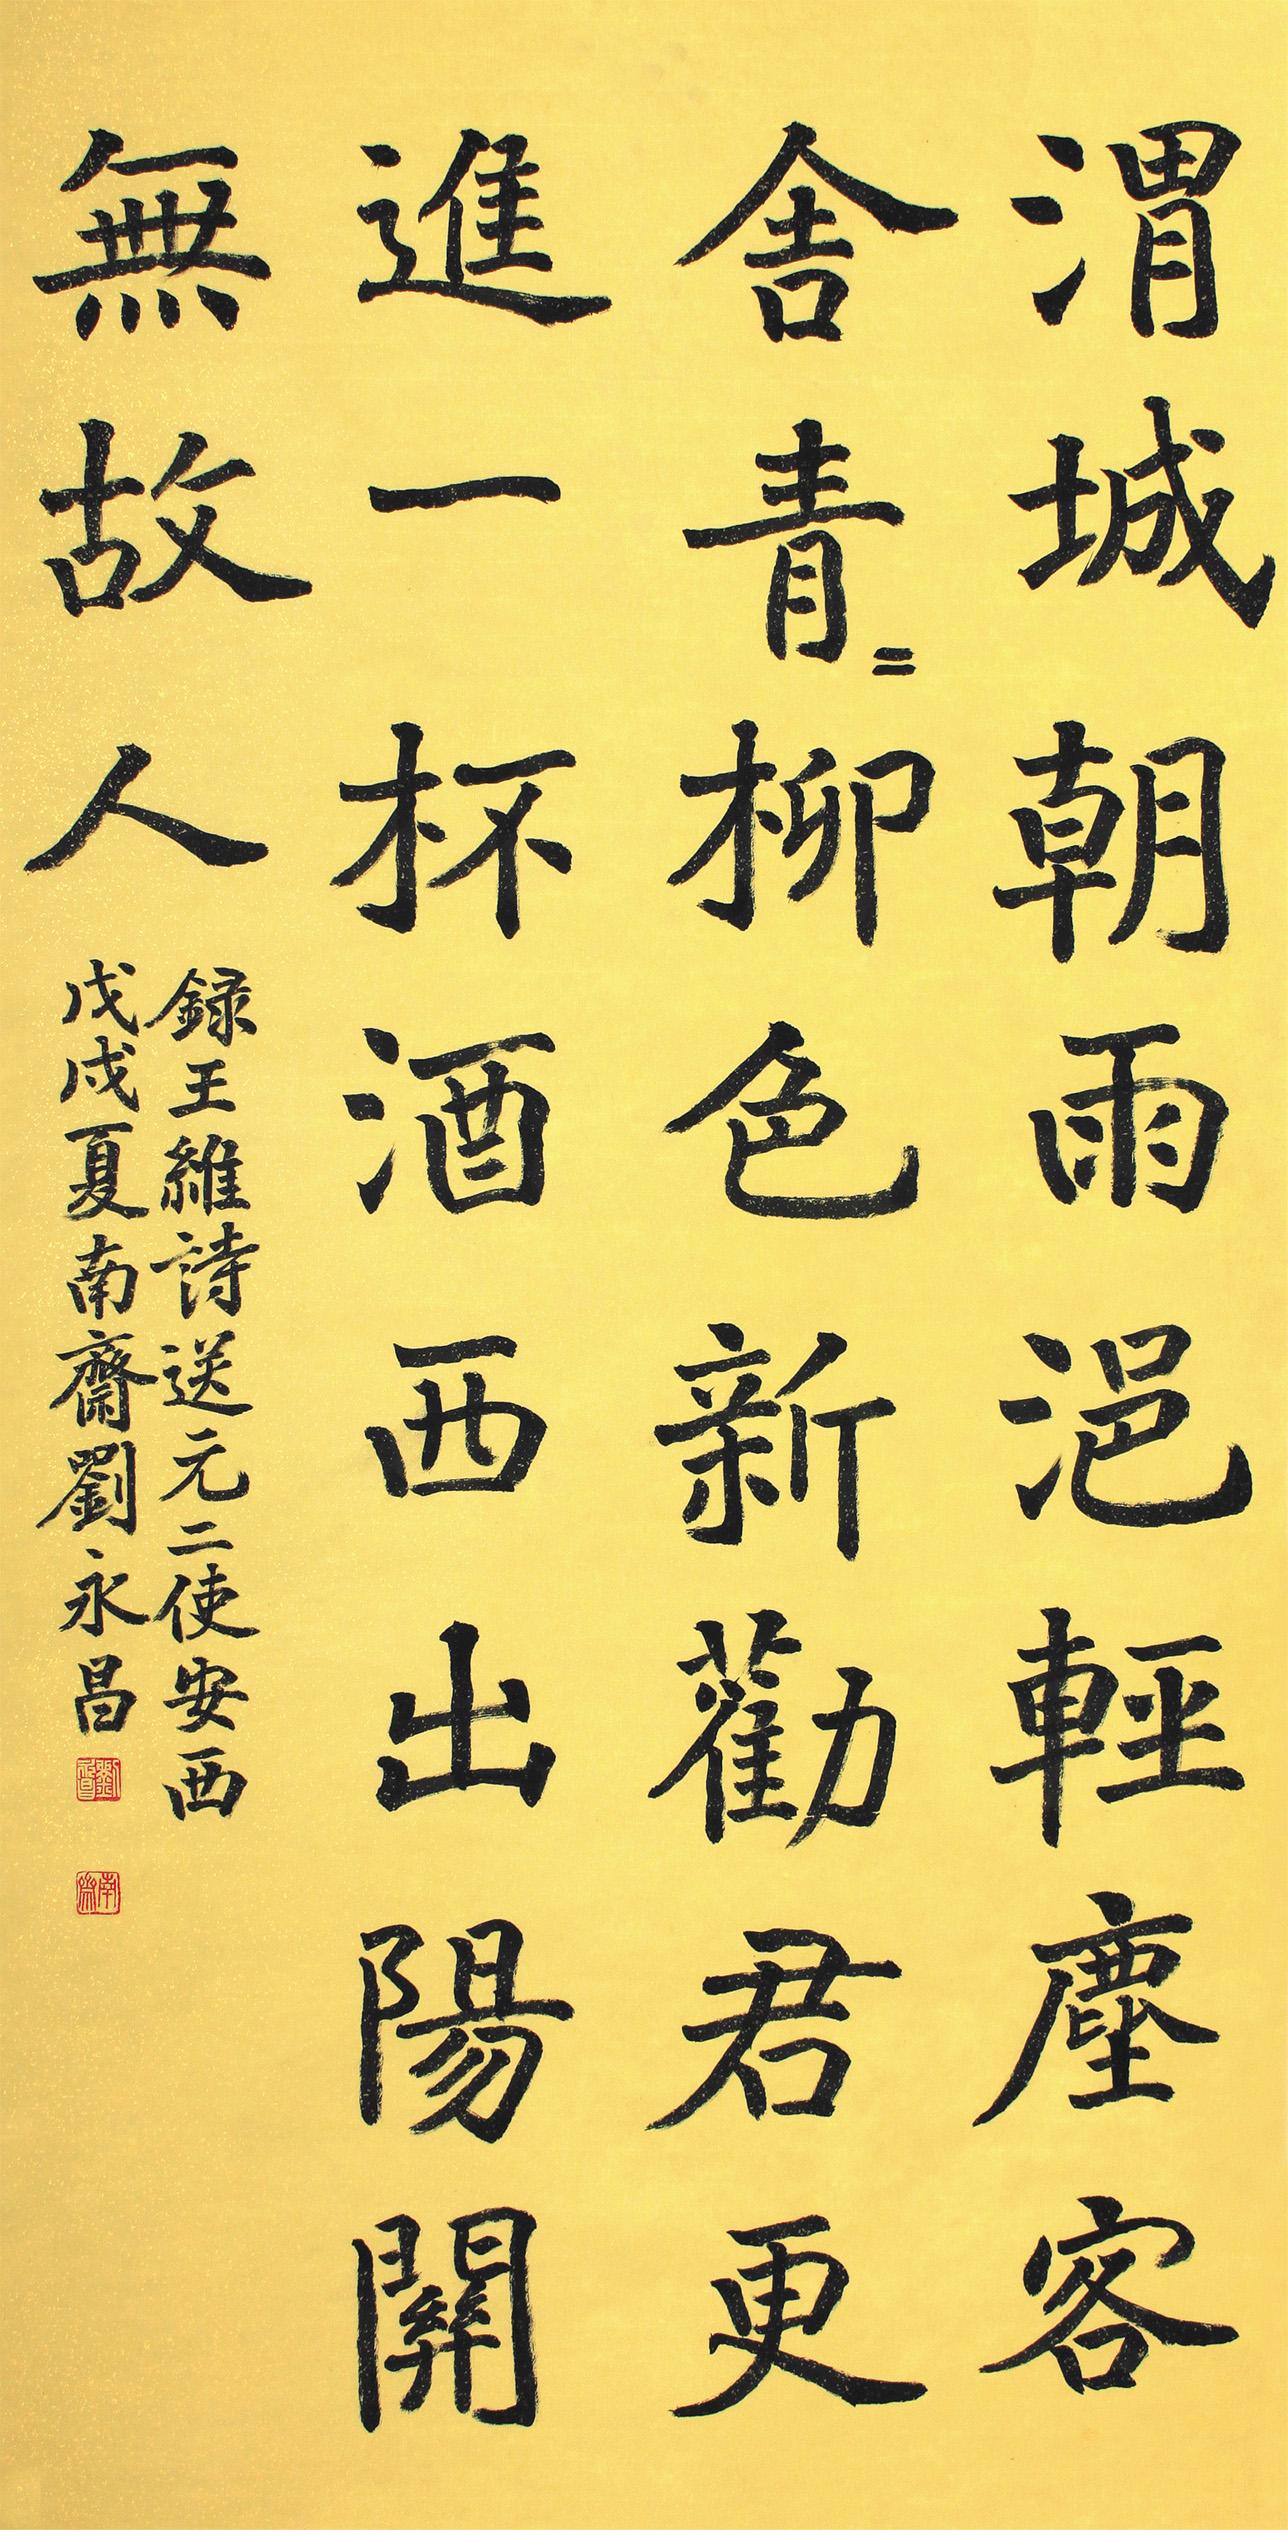 渭城朝雨浥輕塵客
舍青〻柳色新勸君更
進一杯酒西出陽關
無故人
録王維詩送元二使安西
戊戌夏南齋劉永昌